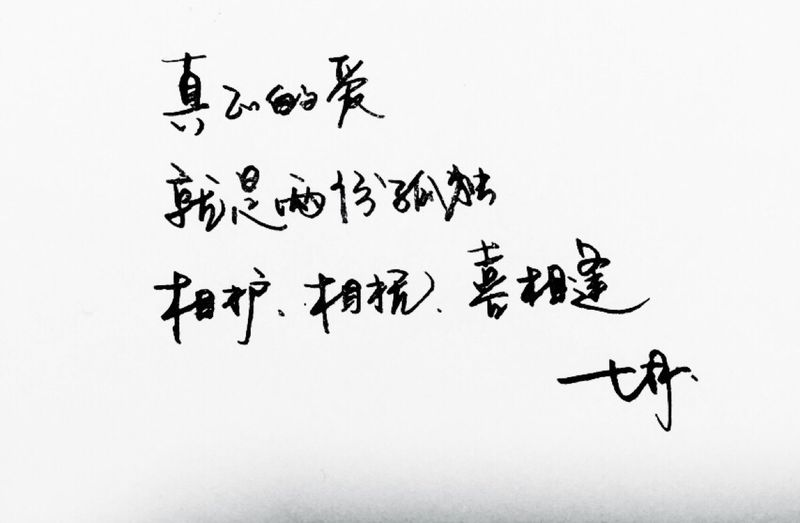 真正的爱
就是两份孤独
相护、相抚、喜相逢